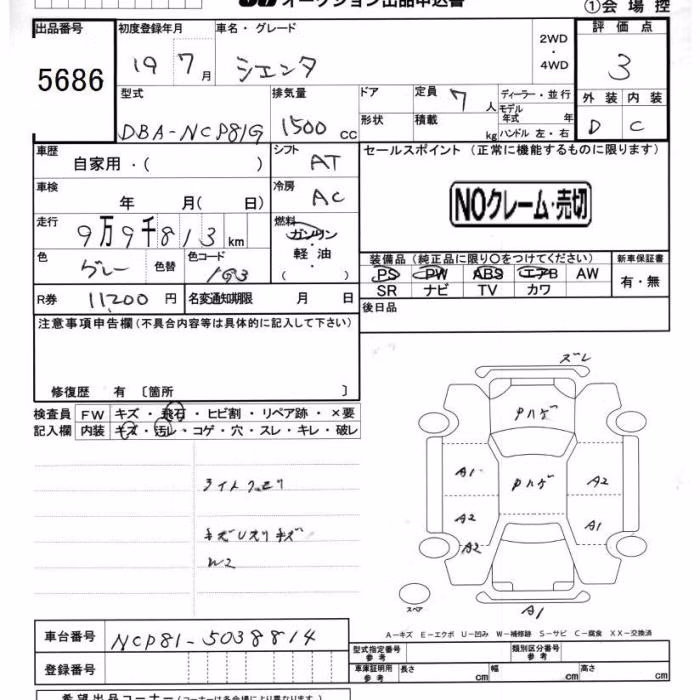 オークション出品申込書
①会場控
出品番号 5686
初度登録年月 19 7月
車名・グレード シエンタ
2WD・4WD
評価点 3
外装 D 内装 C
型式 DBA-NCP81G
排気量 1500 cc
ドア 形状
定員 7人
積載 kg
ディーラー・並行
モデル年式 年
ハンドル 左・右
車歴 自家用・( )
シフト AT
セールスポイント (正常に機能するものに限ります)
車検 年 月( 日)
冷房 AC
NOクレーム・売切
走行 9万9千813km
燃料 ガソリン・軽油・( )
色 グレー 色替 色コード 1G3
装備品 (純正品に限り○をつけてください)
新車保証書 有・無
PS PW ABS エアB AW
SR ナビ TV カワ
R券 11200円
名変通知期限 月 日
後日品
注意事項申告欄 (不具合内容等は具体的に記入して下さい)
修復歴 有 〔箇所 〕
検査員記入欄
FW キズ・飛石・ヒビ割・リペア跡・×要
内装 キズ・汚レ・コゲ・穴・スレ・キレ・破レ
ライトクモリ
W2
ズレ
Pハゲ
Pハゲ
A1 A2
A2 A1
A2
スペア
A1
A-キズ E-エクボ U-凹み W-補修跡 S-サビ C-腐食 XX-交換済
車台番号 NCP81-5038814
登録番号
型式指定番号 参考
類別区分番号 参考
車庫証明用 参考 長さ cm 幅 cm 高さ cm
希望出品コーナー (コーナーは各会場により異なります。)